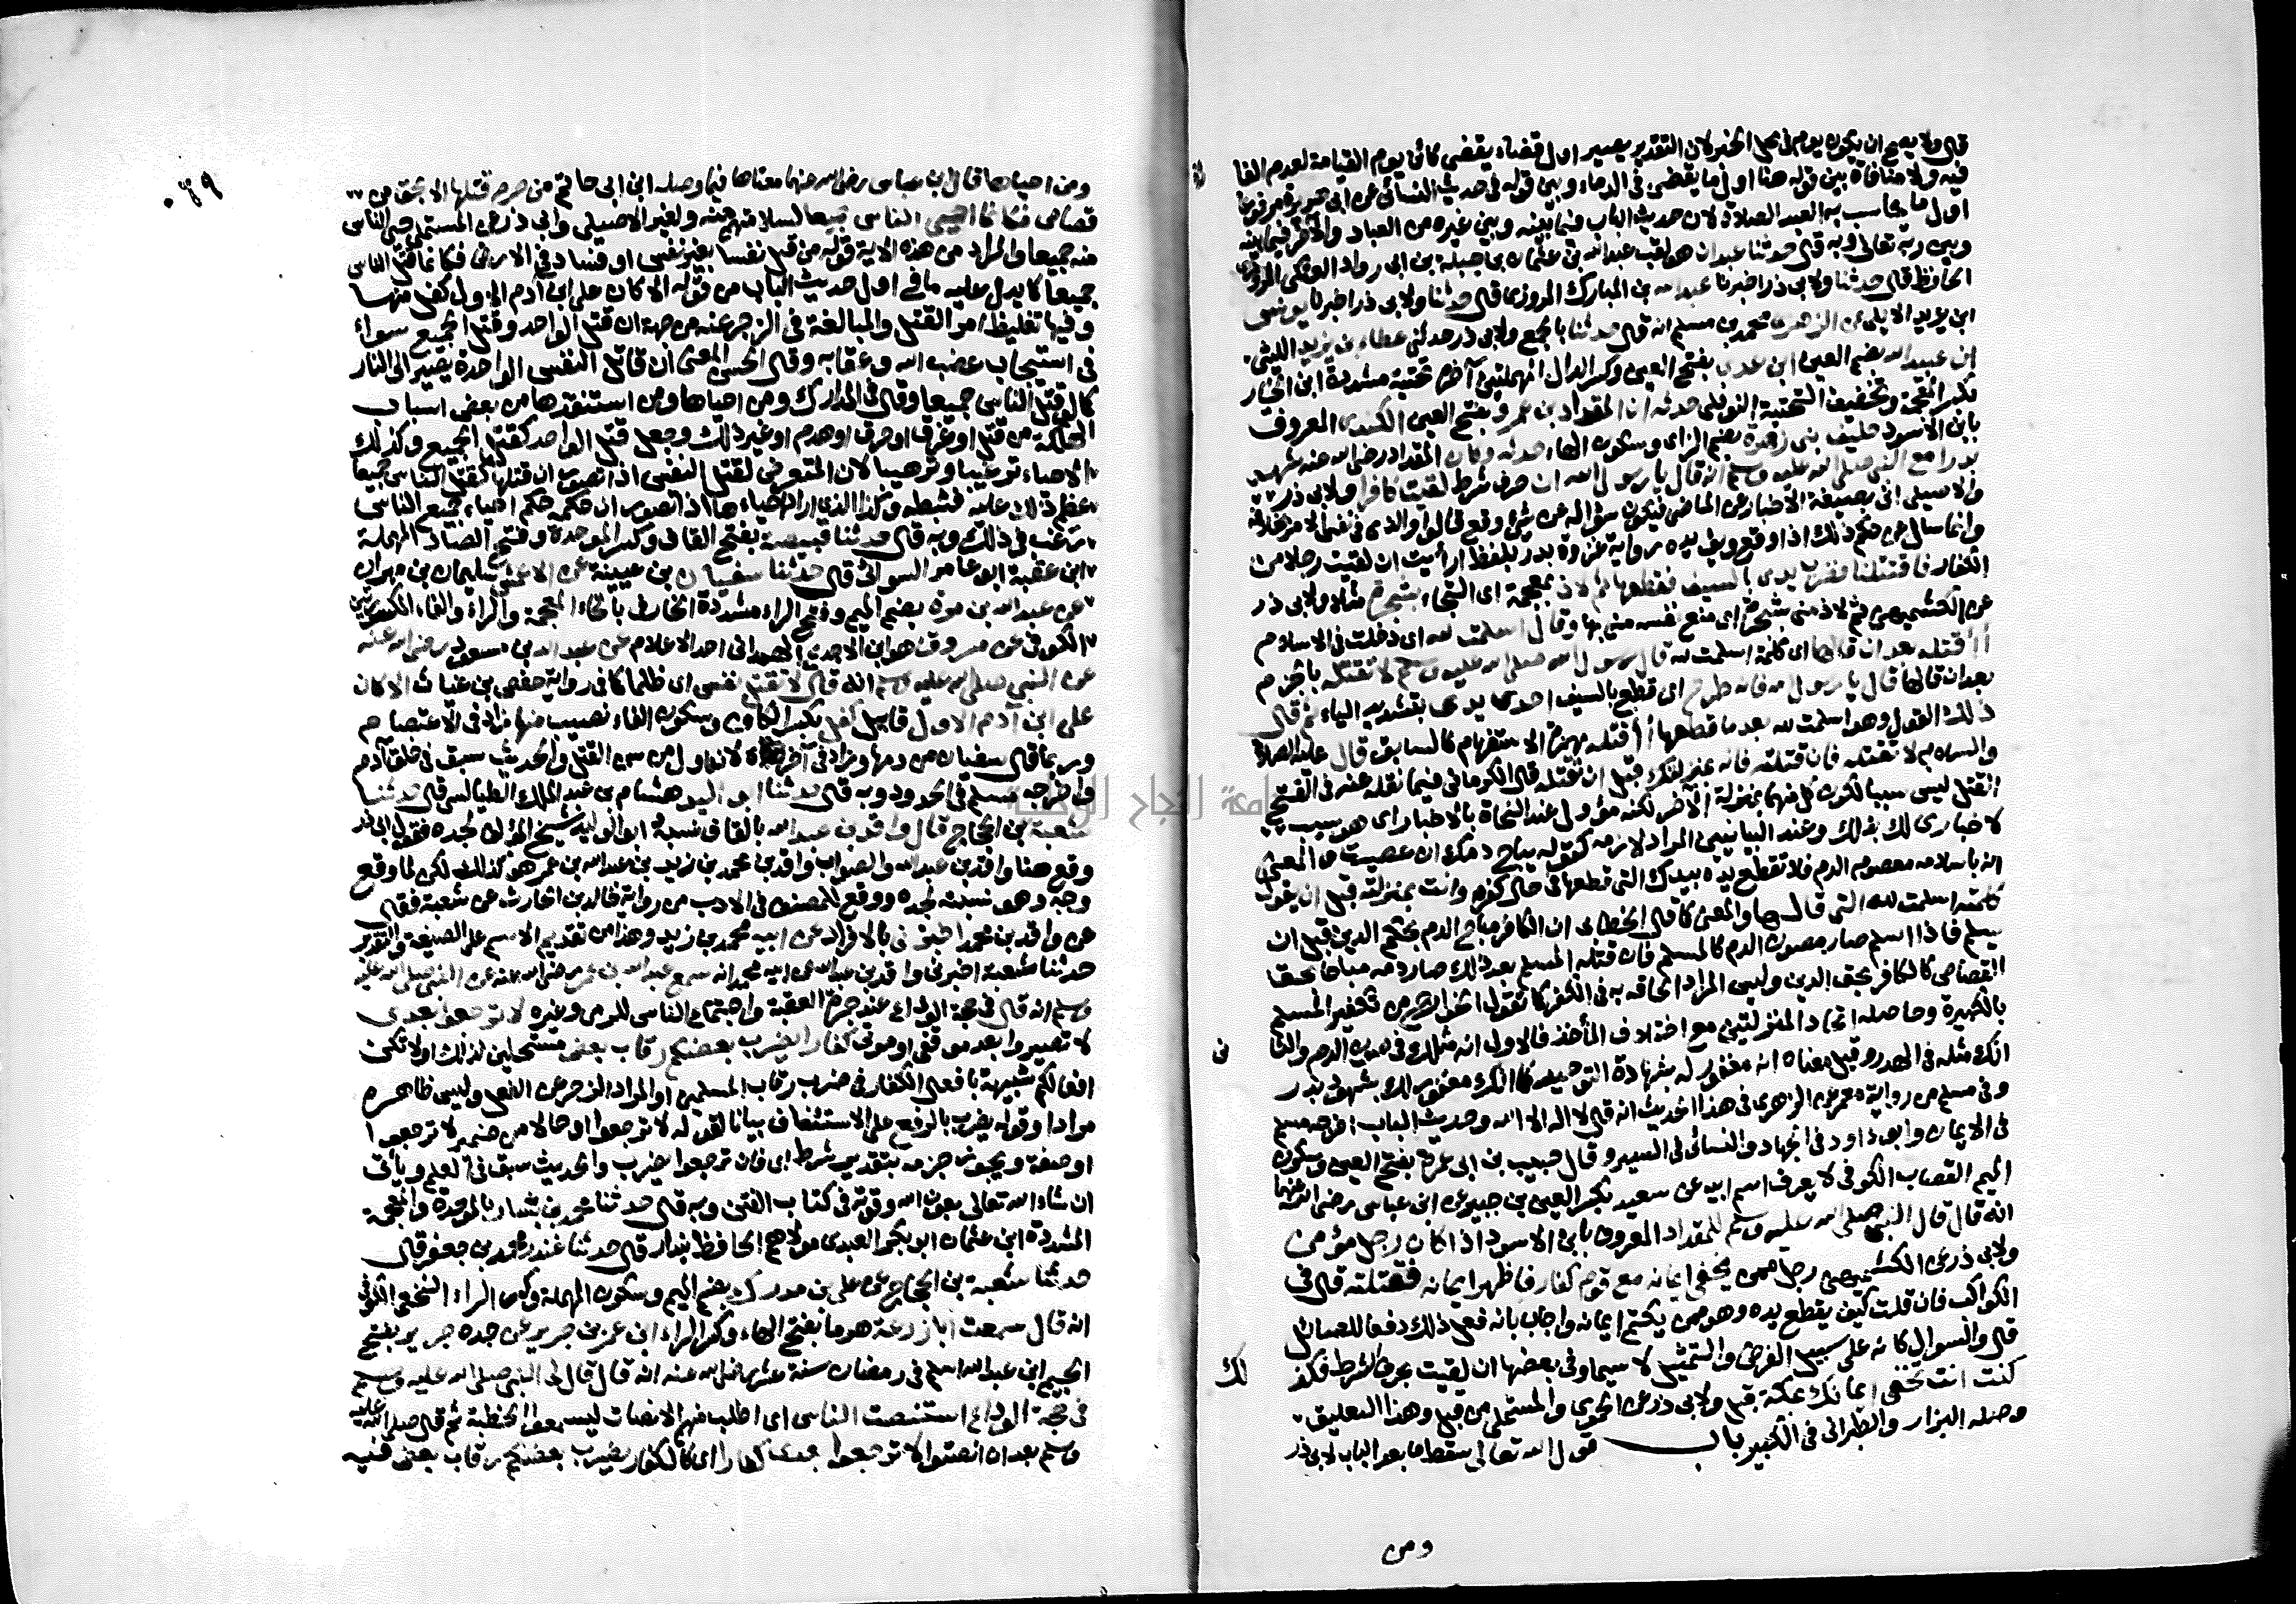 قال ولا يصح ان يكون يوم في محل الخبر لان التقدير يصير اول قضاء يقضى كائن يوم القيامة لعدم الفا
فيه ولا منافاة بين قوله هنا اول ما يقضى في الدماء وبين قوله في حديث النسائي عن ابي هريرة مرفوعا
اول ما يحاسب به العبد الصلاة لان حديث الباب فيما بينه وبين غيره من العباد والآخر فيما بينه
وبين ربه تعالى وبه قال حدثنا عبدان هو لقب عبدالله بن عثمان بن جبلة بن ابي رواد العتكي المروزي
الحافظ قال حدثنا ولابي ذر اخبرنا عبدالله بن المبارك المروزي قال حدثنا ولابي ذر اخبرنا يونس
ابن يزيد الايلي عن الزهري محمد بن مسلم انه قال حدثنا بالجمع ولابي ذر حدثني عطاء بن يزيد الليثي
ان عبيد الله بضم العين ابن عدي بفتح العين وكسر الدال المهملتين آخره تحتية مشددة ابن الخيار
بكسر المعجمة وتخفيف التحتية النوفلي حدثه ان المقداد بن عمرو بفتح العين الكندي المعروف
بابن الاسود حليف بني زهرة بضم الزاي وسكون الهاء حدثه وكان المقداد رضي الله عنه شهد
بدرا مع النبي صلى الله عليه وسلم انه قال يا رسول الله ان حرف شرط لقيت كافرا ولابي ذر
والاصيلي اني بصيغة الاخبار عن الماضي فيكون سؤاله عن شيء وقع قالوا والذي في نفس الامر بخلافه
وانما سال عن حكم ذلك اذا وقع ويؤيده رواية غزوة بدر بلفظ ارأيت ان لقيت رجلا من
الكفار فاقتتلنا فضرب يدي بالسيف فقطعها ثم لاذ بمعجمة اي التجأ بشجرة مثلا ولابي ذر
عن الكشميهني ثم لاذ مني بشجرة اي منع نفسه مني بها وقال اسلمت لله اي دخلت في الاسلام
أأقتله بعد ان قالها اي كلمة اسلمت لله قال رسول الله صلى الله عليه وسلم لا تقتله بالجزم
بعد ان قالها قال يا رسول الله فانه طرح اي قطع بالسيف احدى يدي بتشديد الياء ثم قال
ذلك القول وهو اسلمت لله بعد ما قطعها أأقتله بهمزة الاستفهام كالسابق قال عليه الصلاة
والسلام لا تقتله فان قتلته فانه بمنزلتك قبل ان تقتله قال الكرماني فيما نقله عنه في الفتح
القتل ليس سببا لكون كل منهما بمنزلة الآخر لكنه مؤول عند النحاة بالاخبار اي هو سبب
لاخباري لك بذلك وعند البيانيين المراد لازمه كقوله يباح دمك ان عصيت والمعنى
انه باسلامه معصوم الدم فلا تقطع يده بيدك التي قطعها في حال كفره وانت بمنزلته قبل ان يقول
كلمته اسلمت لله التي قالها والمعنى كما قال الخطابي ان الكافر مباح الدم بحكم الدين قبل ان
يسلم فاذا اسلم صار مصون الدم كالمسلم فان قتله المسلم بعد ذلك صار دمه مباحا بحق
القصاص كالكافر بحق الدين وليس المراد الحاقه به في الكفر كما تقول الخوارج من تكفير المسلم
بالكبيرة وحاصله اتحاد المنزلتين مع اختلاف المأخذ فالاول انه مثلك في صون الدم والثا
انك مثله في الهدر وقيل معناه انه مغفور له بشهادة التوحيد كما انك مغفور لك بشهود بدر
وفي مسلم من رواية معمر عن الزهري في هذا الحديث انه قال لا اله الا الله وحديث الباب اخرجه مسلم
في الايمان وابو داود في الجهاد والنسائي في السير وقال حبيب بن ابي عمرة بفتح العين وسكون
الميم القصاب الكوفي لا يعرف اسم ابيه عن سعيد بكسر العين بن جبير عن ابن عباس رضي الله عنهما
انه قال قال النبي صلى الله عليه وسلم للمقداد المعروف بابن الاسود اذا كان رجل مؤمن
ولابي ذر عن الكشميهني رجل ممن يخفي ايمانه مع قوم كفار فاظهر ايمانه فقتلته قال في
الكواكب فان قلت كيف يقطع يده وهو ممن يكتم ايمانه واجاب بانه فعل ذلك دفعا للصائل
قال والسؤال كانه على سبيل الفرض والتمثيل لا سيما وفي بعضها ان لقيت بحرف الشرط فكذ
لك
كنت انت تخفي ايمانك بمكة قبل ولابي ذر عن الحموي والمستملي من قبل وهذا التعليق
وصله البزار والطبراني في الكبير باب قول الله تعالى سقط ما بعد الباب لابي ذر
ومن
٠٣٩
ومن احياها قال ابن عباس رضي الله عنهما معناها فيما وصله ابن ابي حاتم من حرم قتلها الا بحق من
قصاص فكانما احيى الناس جميعا لسلامتهم منه ولغير الاصيلي وابي ذر عن المستملي حيي الناس
منه جميعا والمراد من هذه الاية قوله من قتل نفسا بغير نفس او فساد في الارض فكانما قتل الناس
جميعا كما يدل عليه ما في اول حديث الباب من قوله الا كان على ابن آدم الاول كفل منها
وفيها تغليظ امر القتل والمبالغة في الزجر عنه من جهة ان قتل الواحد وقتل الجميع سواء
في استيجاب غضب الله وعقابه وقال الحسن المعنى ان قاتل النفس الواحدة يصير الى النار
كما لو قتل الناس جميعا وقال في المدارك ومن احياها ومن استنقذها من بعض اسباب
الهلكة من قتل او غرق او حرق او هدم او غير ذلك وجعل قتل الواحد كقتل الجميع وكذلك
الاحياء ترغيبا وترهيبا لان المتعرض لقتل النفس اذا تصور ان قتلها كقتل الناس جميعا
عظم ذلك عليه فثبطه وكذا الذي اراد احياءها اذا تصور ان حكمه حكم احياء جميع الناس
رغب في ذلك وبه قال حدثنا قبيصة بفتح القاف وكسر الموحدة وفتح الصاد المهملة
ابن عقبة ابو عامر السوائي قال حدثنا سفيان بن عيينة عن الاعمش سليمان بن مهران
عن عبدالله بن مرة بضم الميم وفتح الراء مشددة الخارفي بالخاء المعجمة والراء والفاء المكسورتين
الكوفي عن مسروق هو ابن الاجدع الهمداني احد الاعلام عن عبدالله بن مسعود رضي الله عنه
عن النبي صلى الله عليه وسلم انه قال لا تقتل نفس اي ظلما كما في رواية حفص بن غياث الا كان
على ابن آدم الاول قابيل كفل بكسر الكاف وسكون الفاء نصيب منها زاد في الاعتصام
وربما قال سفيان من دمها وزاد في آخره لانه اول من سن القتل والحديث سبق في خلق آدم
واخرجه مسلم في الحدود وبه قال حدثنا ابو الوليد هشام بن عبد الملك الطيالسي قال حدثنا
شعبة بن الحجاج قال واقد بن عبدالله بالقاف نسبه ابو الوليد شيخ المؤلف لجده فقوله لابي ذر
وقع هنا واقد بن عبدالله والصواب واقد بن محمد بن زيد بن عبدالله بن عمر هو كذلك لكن لما وقع
وجه وهو نسبته لجده ووقع للمصنف في الادب من رواية خالد بن الحارث عن شعبة فقال
عن واقد بن محمد اخبرني بالافراد عن ابيه محمد بن زيد وهذا من تقديم الاسم على الصيغة والتقدير
حدثنا شعبة اخبرني واقد بن عبدالله عن ابيه محمد انه سمع عبدالله بن عمر رضي الله عنه عن النبي صلى الله عليه
وسلم انه قال في حجة الوداع عند جمرة العقبة واجتماع الناس للرمي وغيره لا ترجعوا بعدي
لا تصيروا بعد موقفي او موتي كفارا يضرب بعضكم رقاب بعض مستحلين لذلك او لا تكن
افعالكم شبيهة بافعال الكفار في ضرب رقاب المسلمين او المراد الزجر عن الفعل وليس ظاهره
مرادا وقوله يضرب بالرفع على الاستئناف بيانا لقوله لا ترجعوا او حالا من ضمير لا ترجعوا
او صفة ويجوز جزمه بتقدير شرط اي فان ترجعوا يضرب والحديث سبق في العلم وياتي
ان شاء الله تعالى بعون الله وقوته في كتاب الفتن وبه قال حدثنا محمد بن بشار بالموحدة والمعجمة
المشددة ابن عثمان ابو بكر العبدي مولاهم الحافظ بندار قال حدثنا غندر محمد بن جعفر قال
حدثنا شعبة بن الحجاج عن علي بن مدرك بضم الميم وسكون المهملة وكسر الراء النخعي الكوفي
انه قال سمعت ابا زرعة هرما بفتح الهاء وكسر الراء ابن عمرو بن جرير عن جده جرير بفتح
الجيم ابن عبدالله اسلم في رمضان سنة عشر رضي الله عنه انه قال قال لي النبي صلى الله عليه وسلم
في حجة الوداع استنصت الناس اي اطلب منهم الانصات ليسمعوا الخطبة ثم قال صلى الله عليه
وسلم بعد ان انصتوا لا ترجعوا بعدي كفارا اي كالكفار يضرب بعضكم رقاب بعض فيه